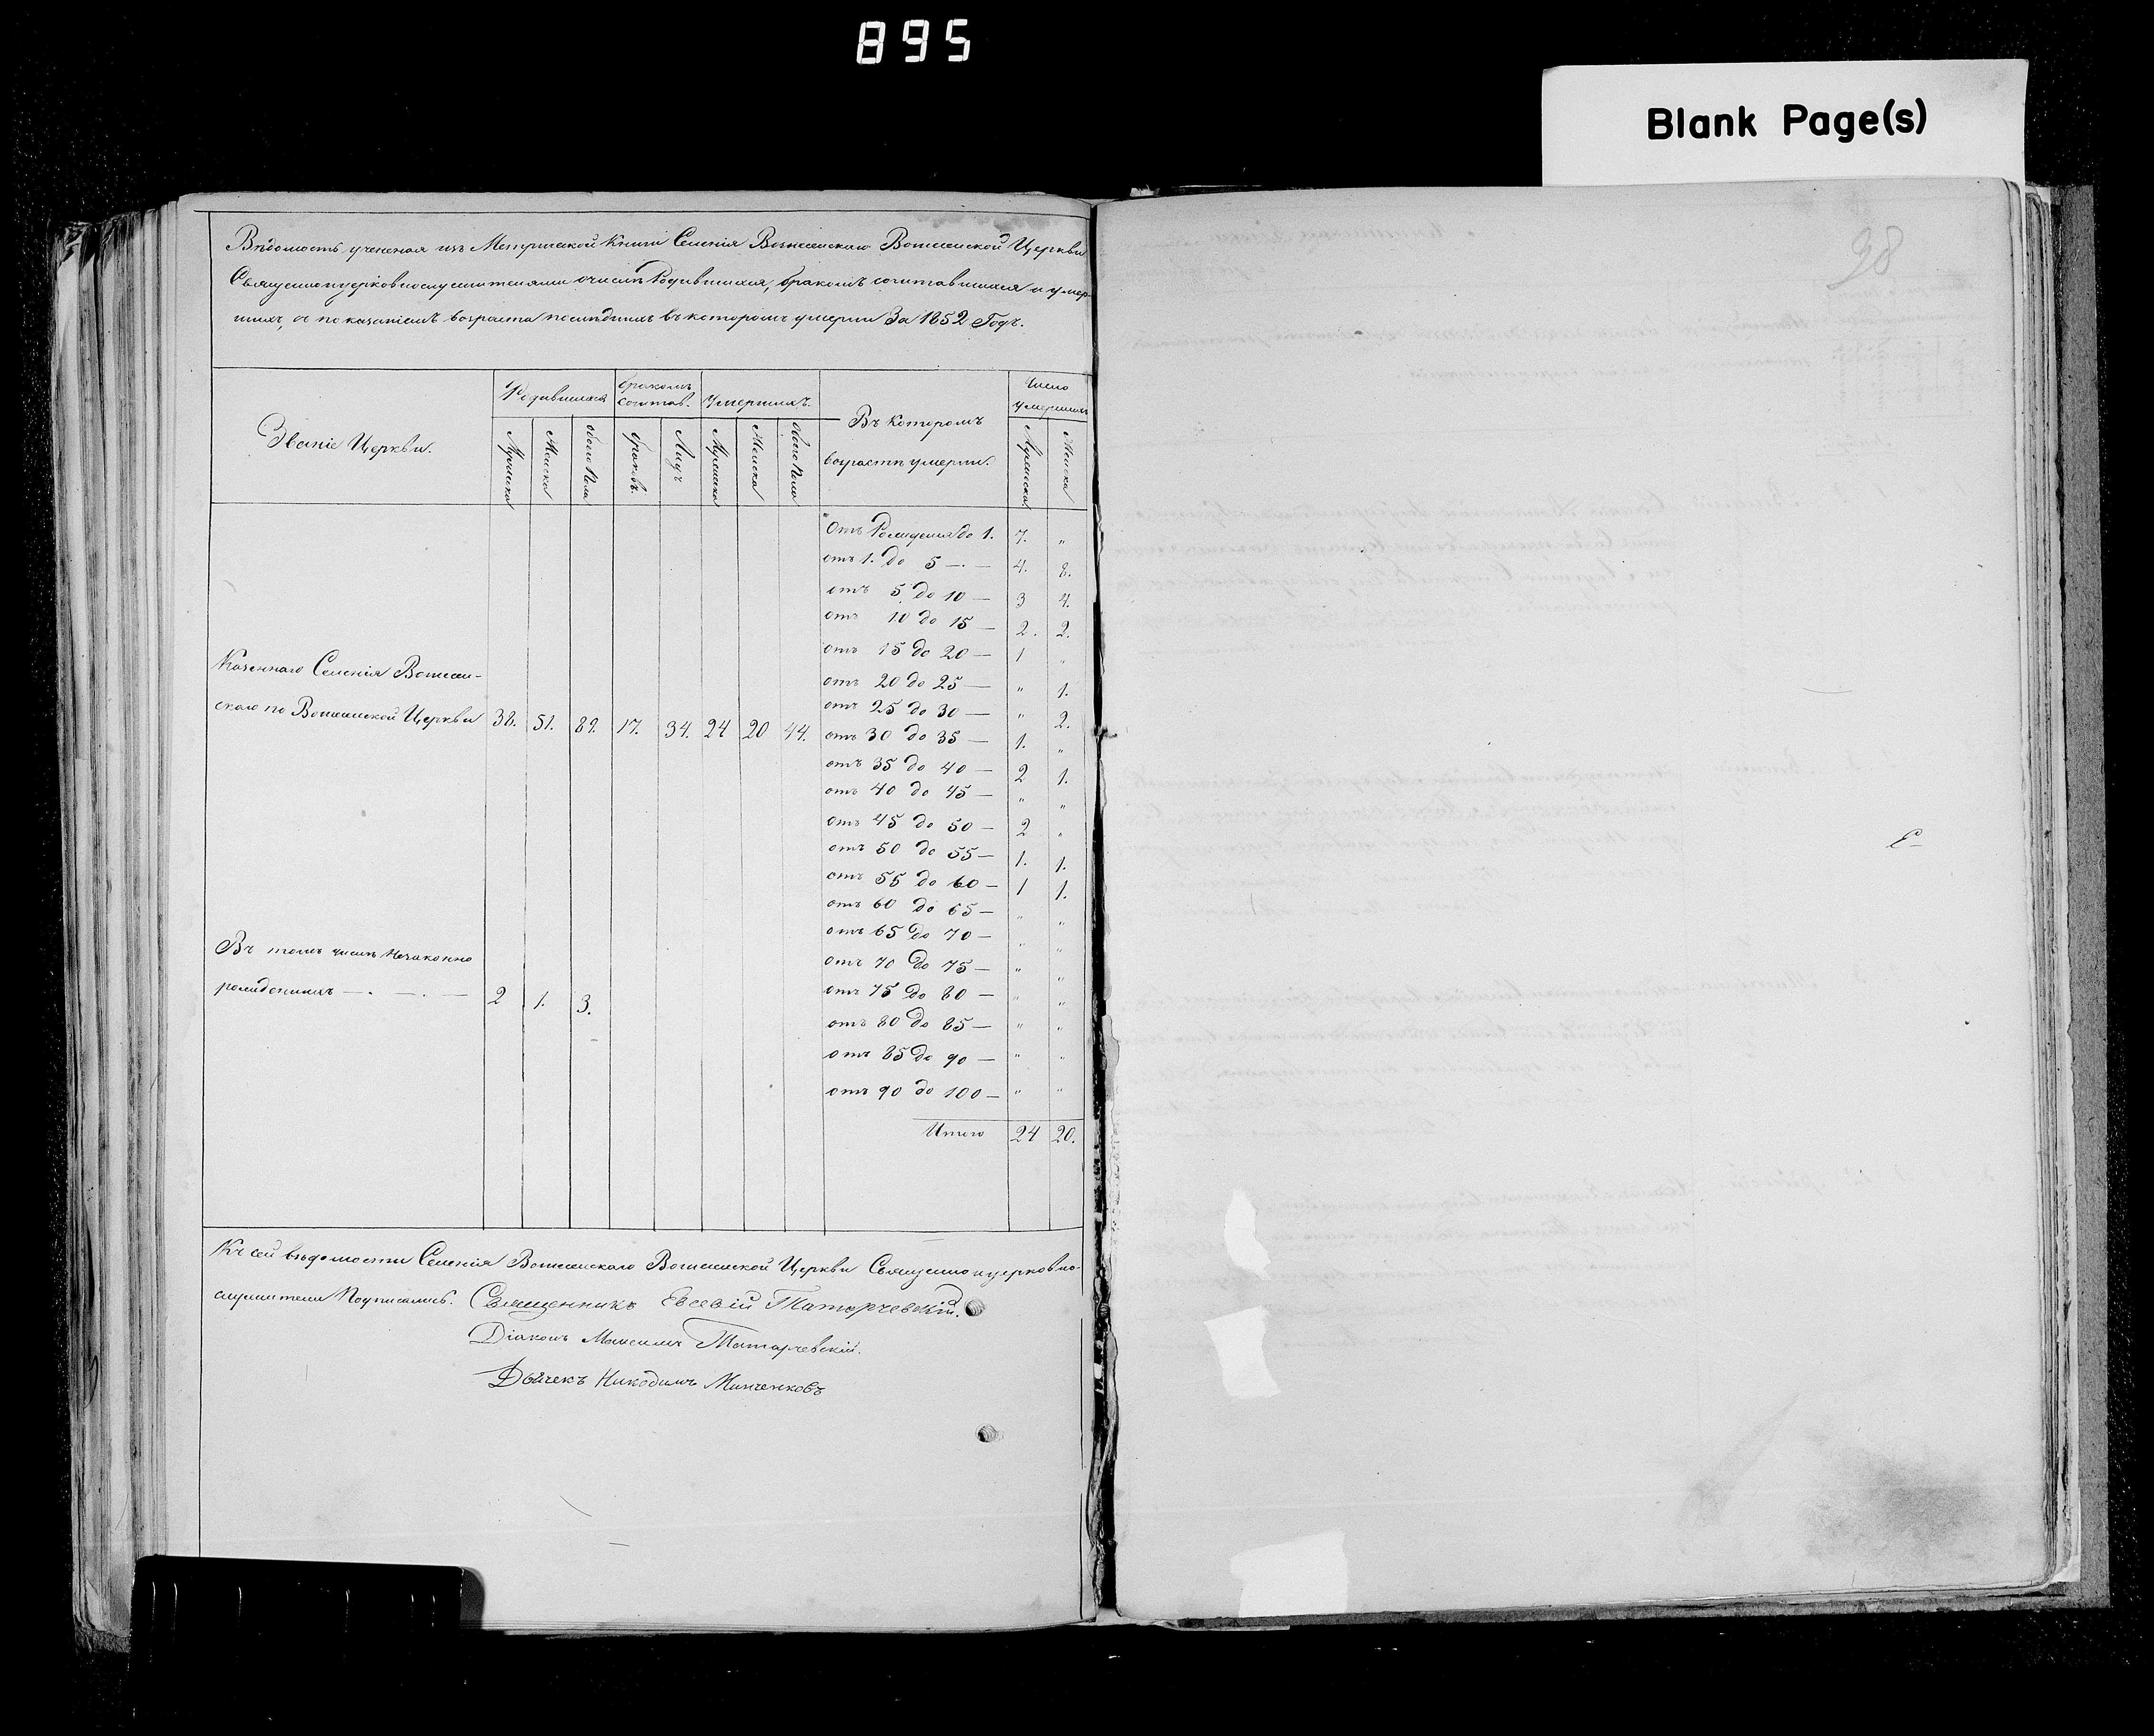 895
Blank Page(s)
98
Вѣдомость учененая изъ Метрической Книги Селенія Церкви
Священноцерковнослужителями о числѣ Родившихся, бракомъ сочетавшихся и умер-
шихъ, съ показаніемъ возраста послѣднихъ въ которомъ умерли За 1852 Годъ.
Званіе Церкви.
Родившихся
бракомъ сочетав.
умершихъ.
Въ Которомъ возрастѣ умерли.
Число умершихъ
Мужеска Женска обоего Пола браковъ. Лицъ Мужеска Женска обоего Пола Мужеска Женска
Отъ Рожденія до 1. 7. „
отъ 1. до 5 —.— 4. 8.
отъ 5 до 10 — 3 4.
отъ 10 до 15 — 2. 2.
отъ 15 до 20 — 1 „
Казеннаго Селенія
отъ 20 до 25 — „ 1.
отъ 25 до 30 — „ 2.
скаго по Церкви 38. 51. 89. 17. 34. 24 20 44.
отъ 30 до 35 — 1. „
отъ 35 до 40 — 2 1.
отъ 40 до 45 — „ „
отъ 45 до 50 — 2 „
отъ 50 до 55 — 1. 1.
отъ 55 до 60 — 1 1.
отъ 60 до 65 — „ „
отъ 65 до 70 — „ „
Въ томъ числѣ Незаконно
отъ 70 до 75 — „ „
рожденныхъ —.—.— 2 1. 3.
отъ 75 до 80 — „ „
отъ 80 до 85 — „ „
отъ 85 до 90 — „ „
отъ 90 до 100 — „ „
Итого 24 20.
Къ сей вѣдомости Селенія Церкви Священноцерковно-
служители Подписались. Священникъ Евсевій Татарчевскій.
Діаконъ Максимъ Татарчевскій.
Дьячекъ Никодимъ Минченковъ